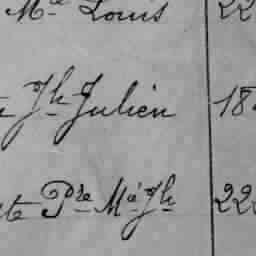 Mel Louis 22
Jh Julien 18
te Pre Mie Jh 22